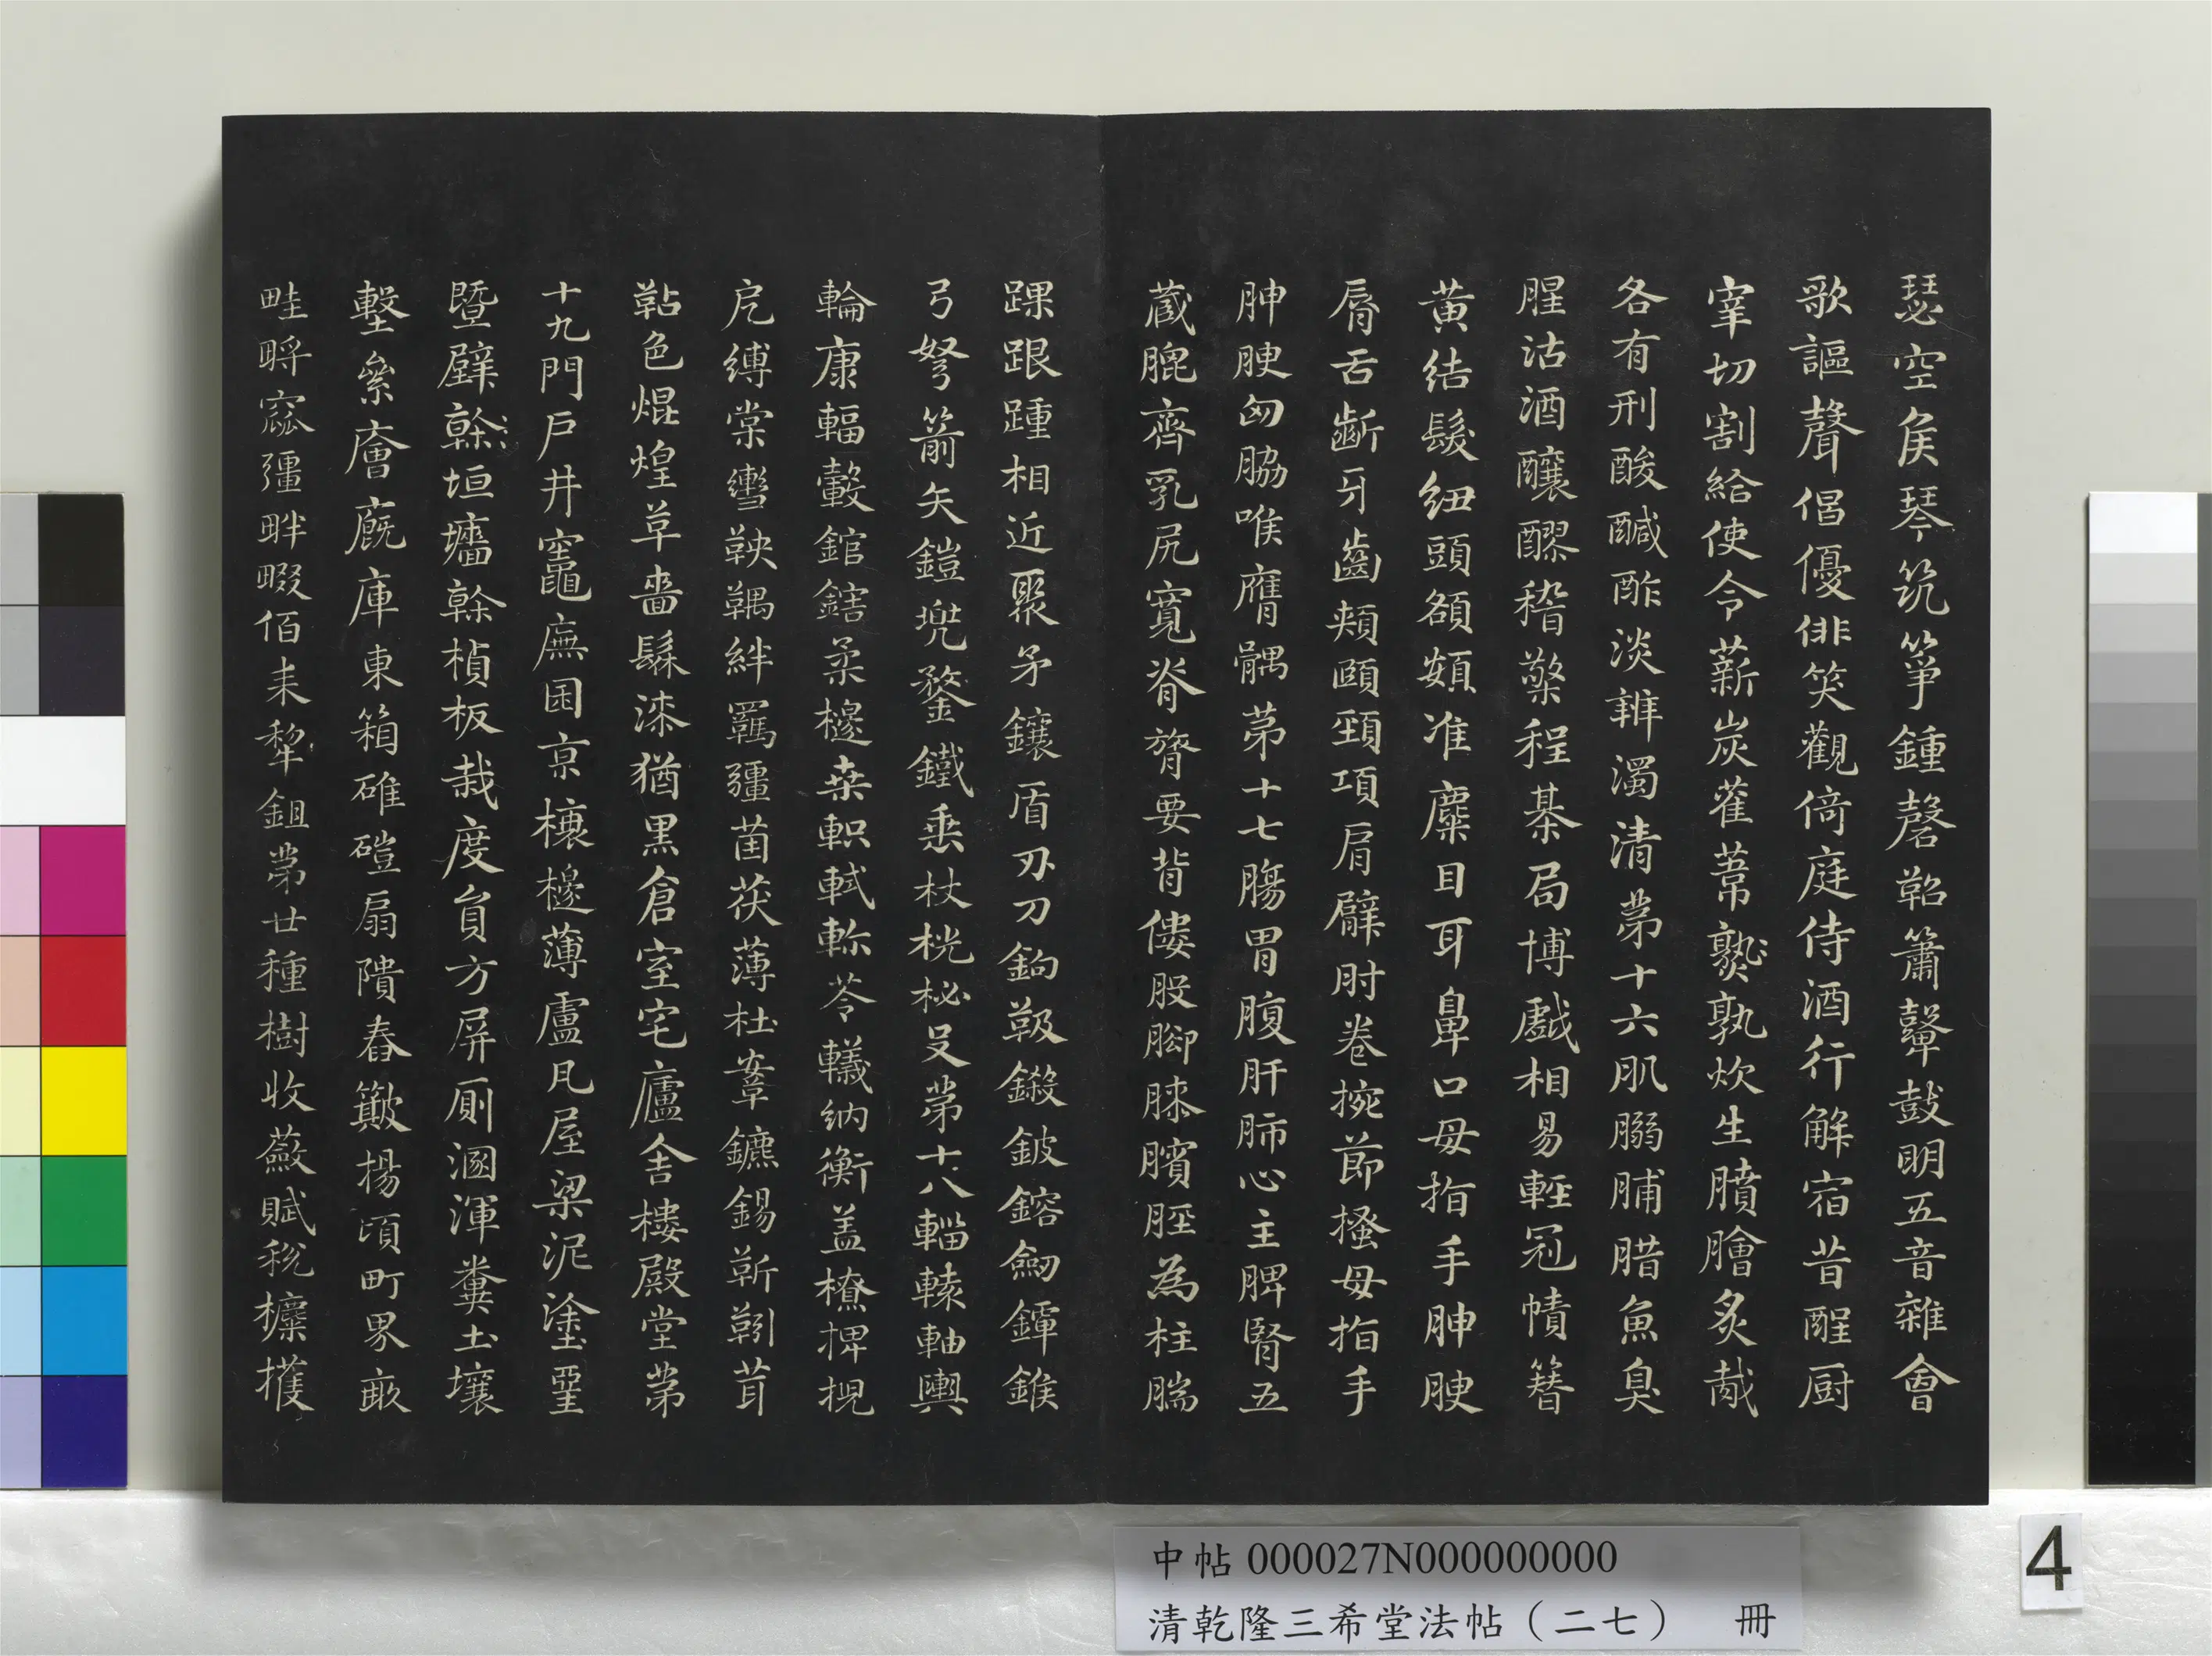 瑟空矦琴筑箏鍾磬鞀簫鼙鼓明五音雜會
歌謳聲倡優俳笑觀倚庭侍酒行觧宿昔酲厨
宰切割給使令薪炭雚葦孰炊生膹膾炙胾
各有刑酸醎酢淡辨濁清苐十六肌𦟛脯腊魚臭
腥沽酒釀醪稽檠程棊局博戲相易輕冠幘簪
黄結髮紐頭頟頞准麋目耳鼻口毋指手胂腴
脣舌齗牙齒頰頤頸項肩臂肘卷捥節搔母指手
胂腴匈脇喉膺髃苐十七膓胃腹肝肺心主脾腎五
蔵膍齊乳尻寛脊膂要背僂股脚膝臏脛為柱腨
踝跟踵相近聚矛鑲盾刃刀鉤鈒鍛鈹鎔劒鐔鍭
弓弩箭矢鎧兠鍪鐵垂杖桄柲殳苐十八輜轅軸輿
輪康輻轂錧鎋柔𣟄桒軹軾軫苓轙納衡盖橑捭掜
戹縛棠轡鞅鞨絆羈彊茵茯薄杜鞌鑣鍚靳靷茸
鞊色焜煌草嗇髹漆猶黒倉室宅廬舎樓殿堂苐
十九門户井竈廡囷京㯠𣟄薄盧凡屋梁泥塗堊
墍壁榦垣墻榦楨板栽度員方屏厠溷渾糞土壤
墼絫廥廐庫東箱碓磑扇隤舂簸揚頃町界畝
畦畤窊彊畔畷佰耒犂鉏苐廿種樹收斂賦稅攟穫
中帖 000027N000000000
清乾隆三希堂法帖（二七） 冊
4